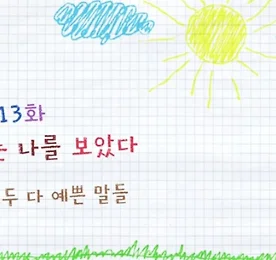 13화
나를 보았다
두 다 예쁜 말들